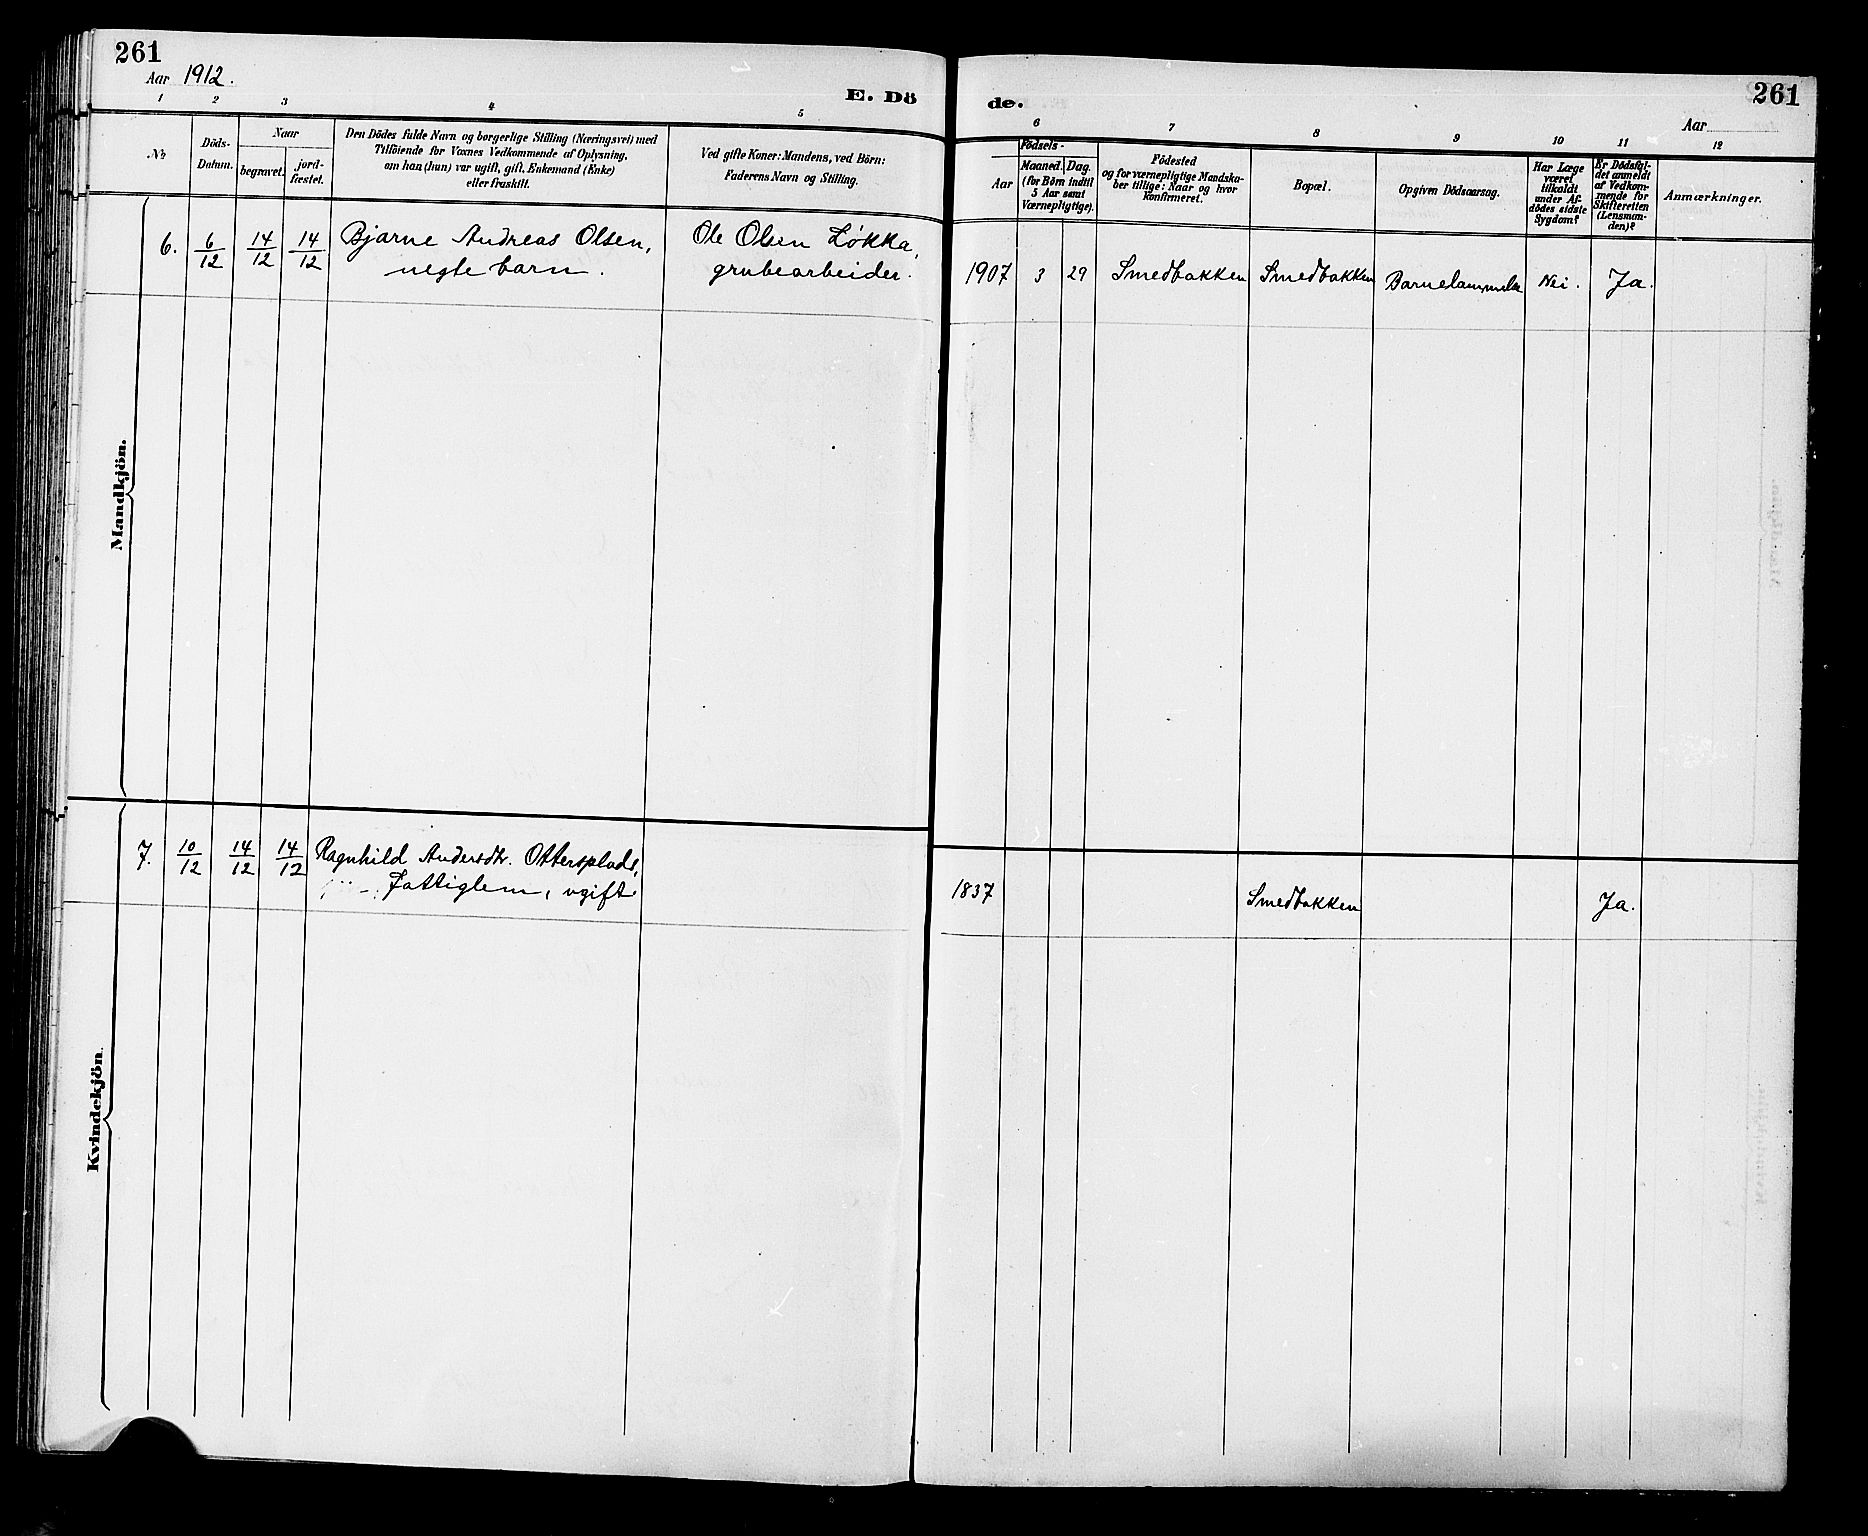 261
Aar 1912.
E. Dö
de.
261
Aar
1 2 3 4 5 6 7 8 9 10 11 12
No
Döds-
Datum.
Naar
begravet.
jord-
fæstet.
Den Dödes fulde Navn og borgerlige Stilling (Næringsvei) med
Tilföiende for Voxnes Vedkommende af Oplysning,
om han (hun) var ugift, gift, Enkemand (Enke)
eller fraskilt.
Ved gifte Koner: Mandens, ved Börn:
Faderens Navn og Stilling.
Födsels-
Aar
Maaned. Dag.
(for Börn indtil
5 Aar samt
Værnepligtige).
Födested
og for værnepligtige Mandska-
ber tillige: Naar og hvor
konfirmeret.
Bopæl.
Opgiven Dödsaarsag.
Har Læge
været
tilkaldt
under Af-
dödes sidste
Sygdom?
Er Dödsfal-
det anmeldt
af Vedkom-
mende for
Skifteretten
(Lensman-
den)?
Anmærkninger.
Mandkjön.
6. 6/12 14/12 14/12 Bjarne Andreas Olsen, Ole Olsen Løkka,
negte barn. grubearbeider.
1907 3 29 Smedbakken Smedbakken Barnelammelse Nei. Ja.
Kvindekjön
7. 10/12 14/12 14/12 Ragnhild Andersdtr. Ottersplads,
Fattiglem, ugift
1837 Smedbakken Ja.